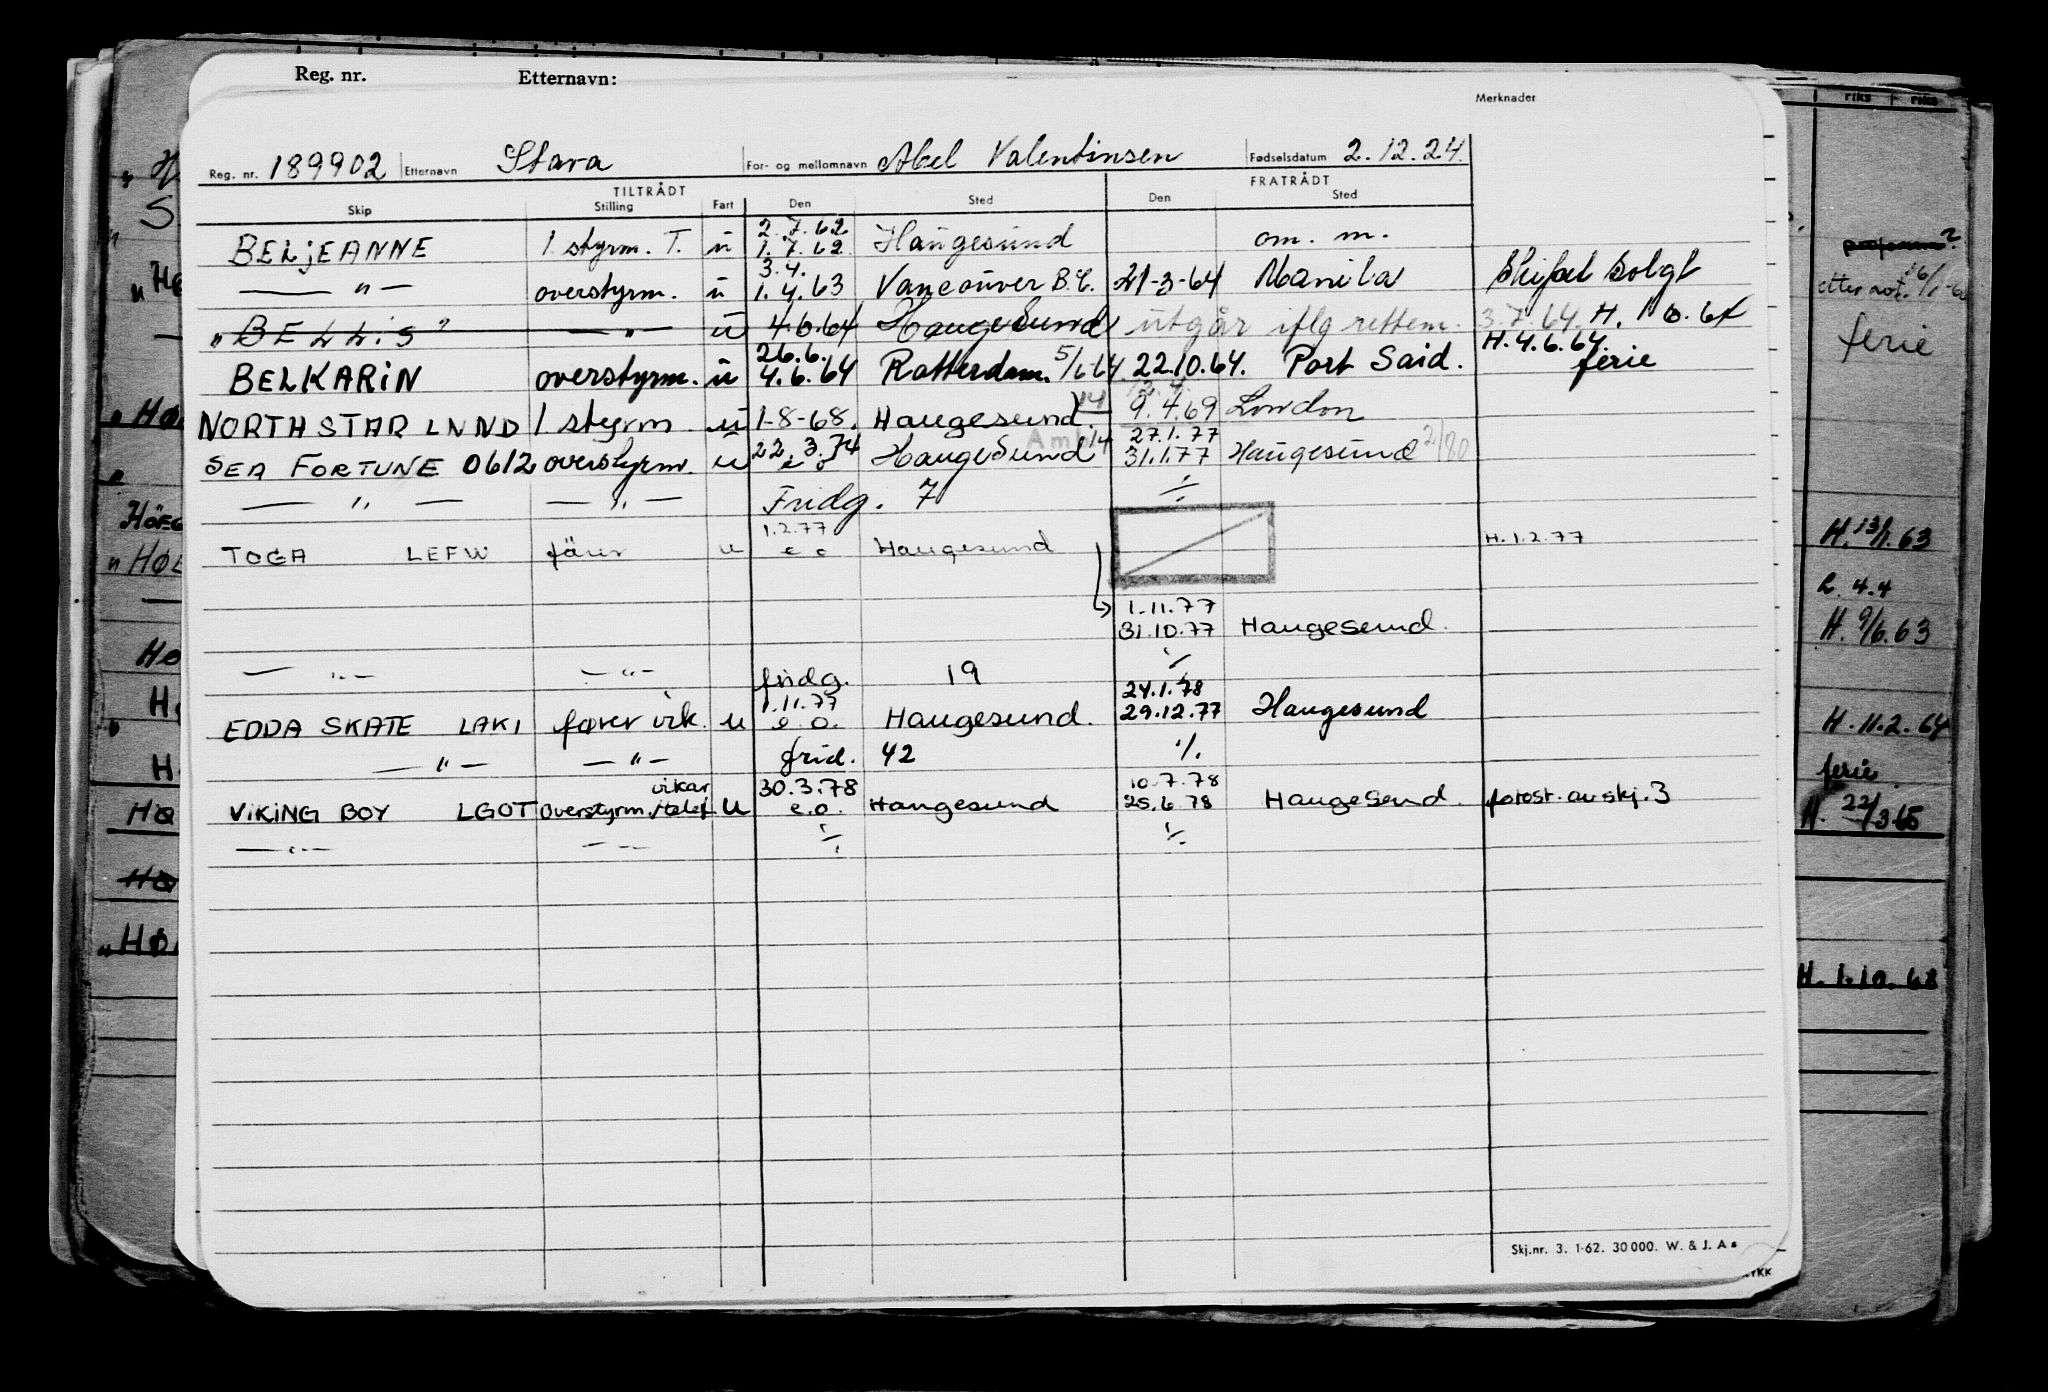 Reg. nr. Etternavn:
Merknader
Reg. nr. 189902 Etternavn Stava For- og mellomnavn Abel Valentinsen Fødselsdatum 2.12.24.
TILTRÅDT FRATRÅDT
Skip Stilling Fart Den Sted Den Sted
2.7.62
BELJEANNE 1 styrm. T. u 1.7.62. Haugesund om. m.
3.4.
— " — overstyrm. u 1.4.63 Vancouver B.C. 21-3-64 Manila Skipet solgt
"BELLIS" — " — u 4.6.64 Haugesund utgår iflg rettem. 3.7.64. H. 1.6.64
26.6. H.4.6.64.
BELKARIN overstyrm. u 4.6.64 Rotterdam. 5/6 64. 22.10.64. Port Said. ferie
12.4.
NORTH STAR LNND 1 styrm. u 1-8-68. Haugesund. 14 9.4.69 London
22.3.74 27.1.77
SEA FORTUNE 0612 overstyrm. u e o Haugesund 14 31.1.77 Haugesund 2/80
— " — — " — Fridg. 7 ⁒
1.2.77
TOGA LEFW fører u e o Haugesund H.1.2.77
1.11.77
31.10.77 Haugesund.
— " — — " — fridg. 19 ⁒
1.11.77 24.1.78
EDDA SKATE LAKI fører vik. u e.o. Haugesund. 29.12.77 Haugesund
— " — — " — frid. 42 ⁒
vikar 30.3.78 10.7.78
VIKING BOY LGOT Overstyrm. u e.o. Haugesund 25.6.78 Haugesund. forost. av skj. 3
— " — — " — ⁒ ⁒
Skj.nr. 3. 1-62. 30000. W. & J. A s
riks riks
etter not. 16/1-6
ferie
H. 13/1.63
L. 4.4
H. 9/6.63
H. 11.2.64
ferie
H. 22/3.65
H. 1.10.68